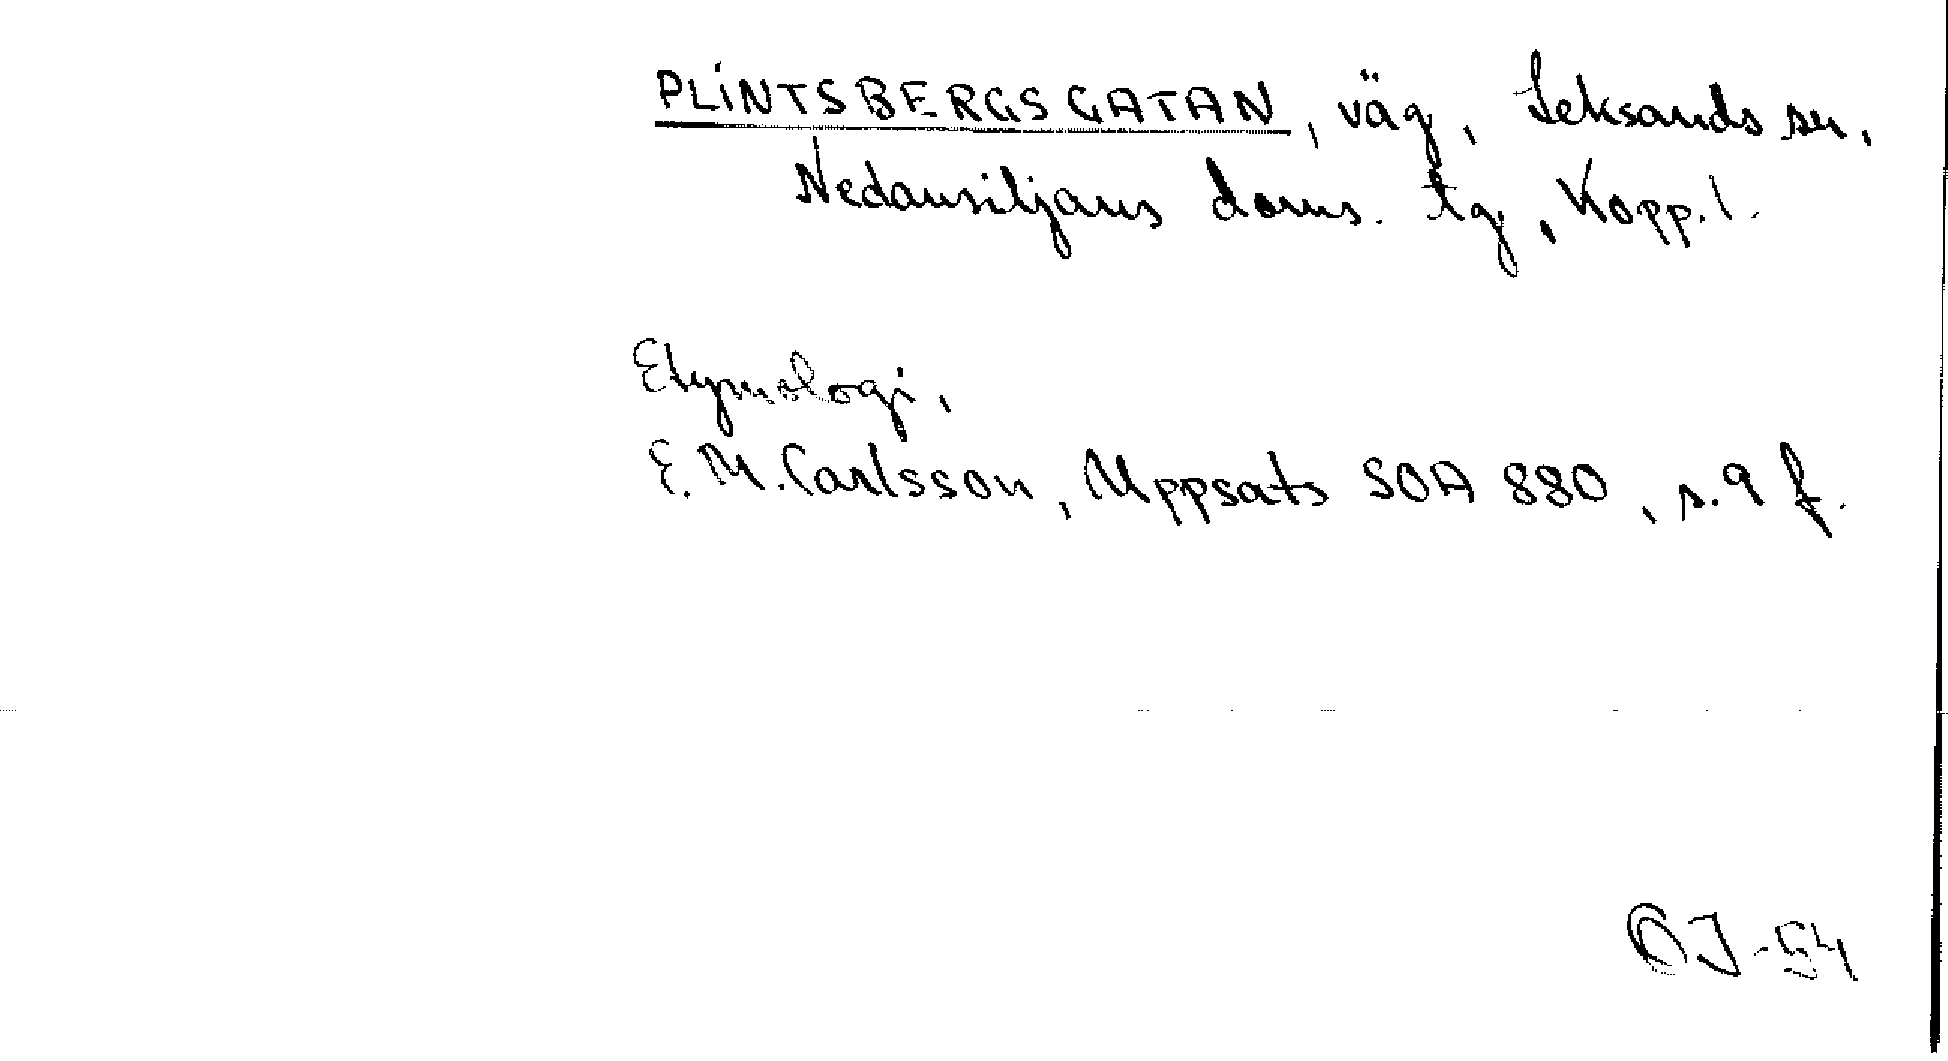 PLINTSBERGSGATAN, väg, Leksands sn,
Nedansiljans doms. tg, Kopp. l.
Etymologi,
E. M. Carlsson, Uppsats SOA 880, s. 9 f.
OJ-54